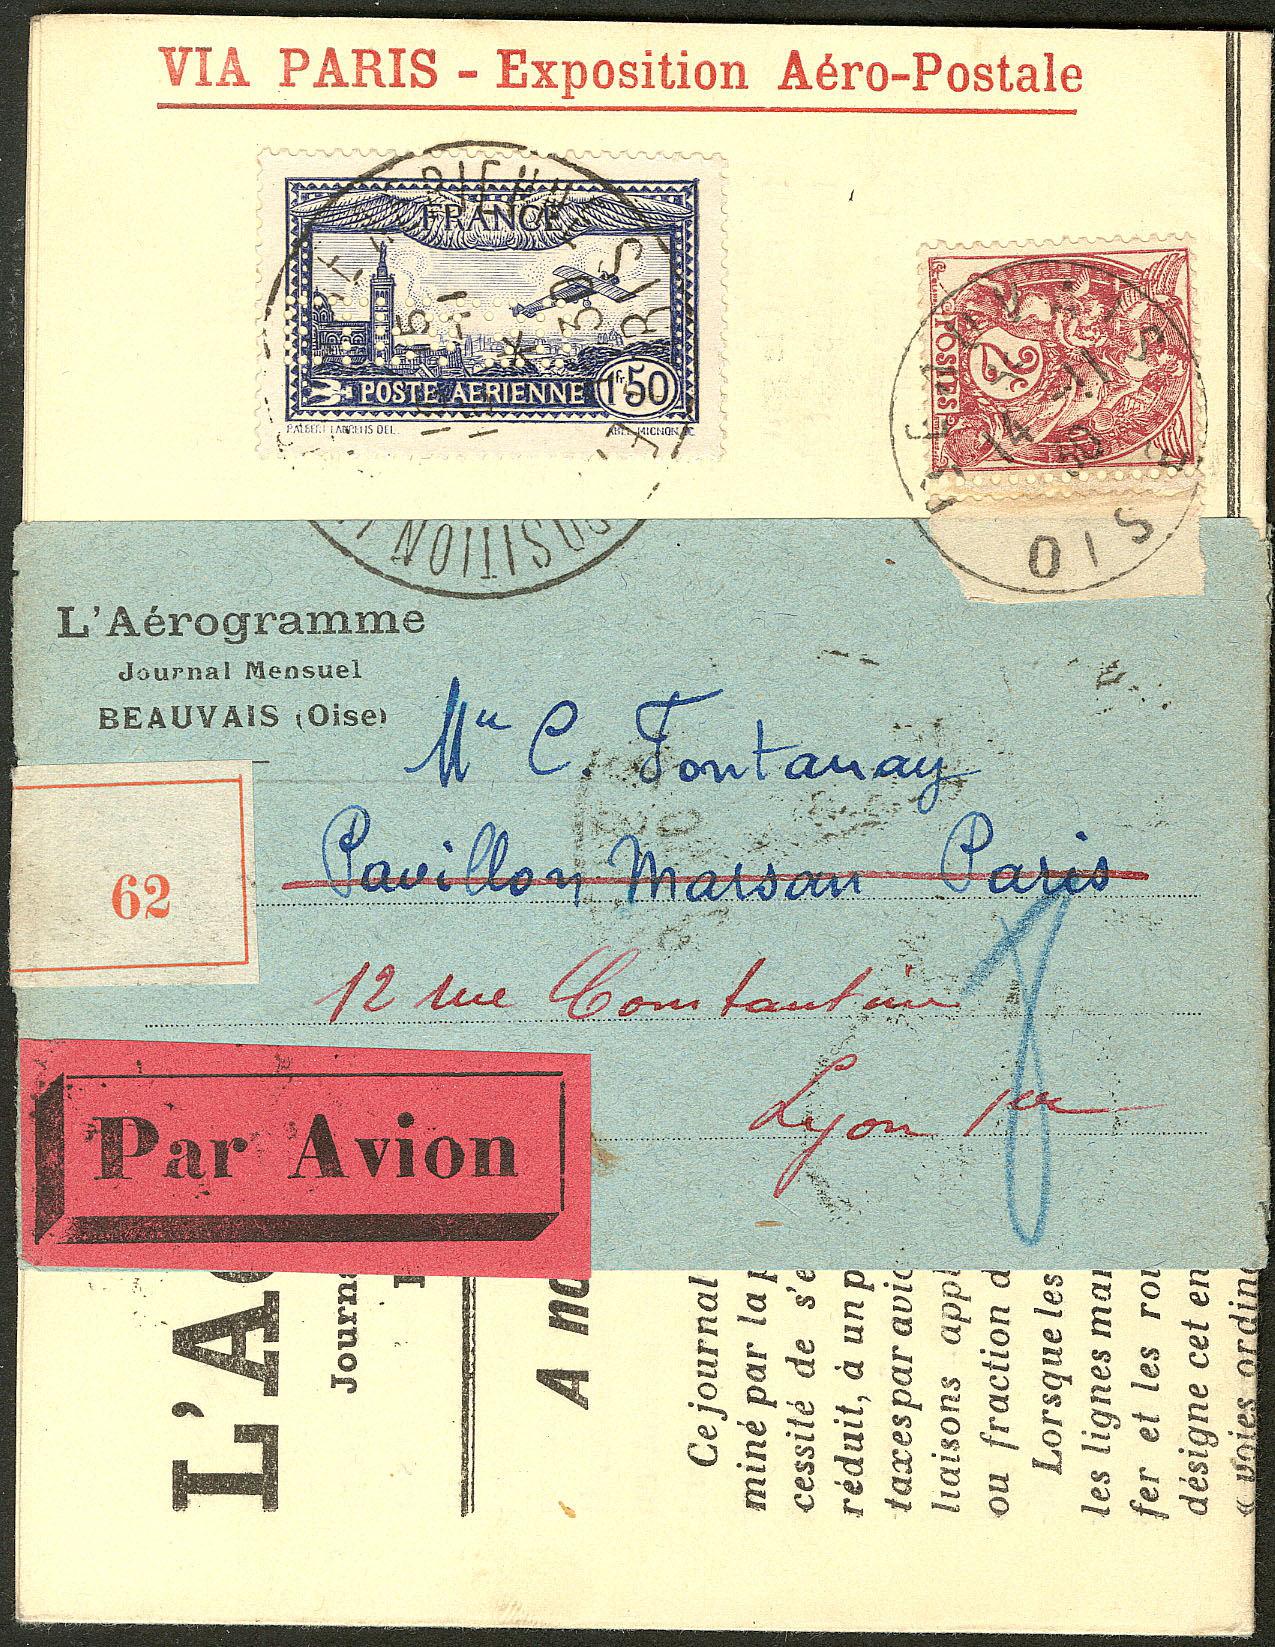 VIA PARIS - Exposition Aéro-Postale
FRANCE
POSTE AERIENNE 1fr.50
POSTES 2c
14
30
OIS
L'Aérogramme
Journal Mensuel
BEAUVAIS (Oise)
Mlle C. Fontanay
Pavillon Marsan Paris
62
12 rue Constantine
Lyon 1er
Par Avion
L'A
Journ
A
Ce journal
miné par la
cessité de s'e
réduit, à un p
taxes par avio
liaisons appl
ou fraction d
Lorsque les
les lignes mar
fer et les rou
désigne cet en
« voies ordin